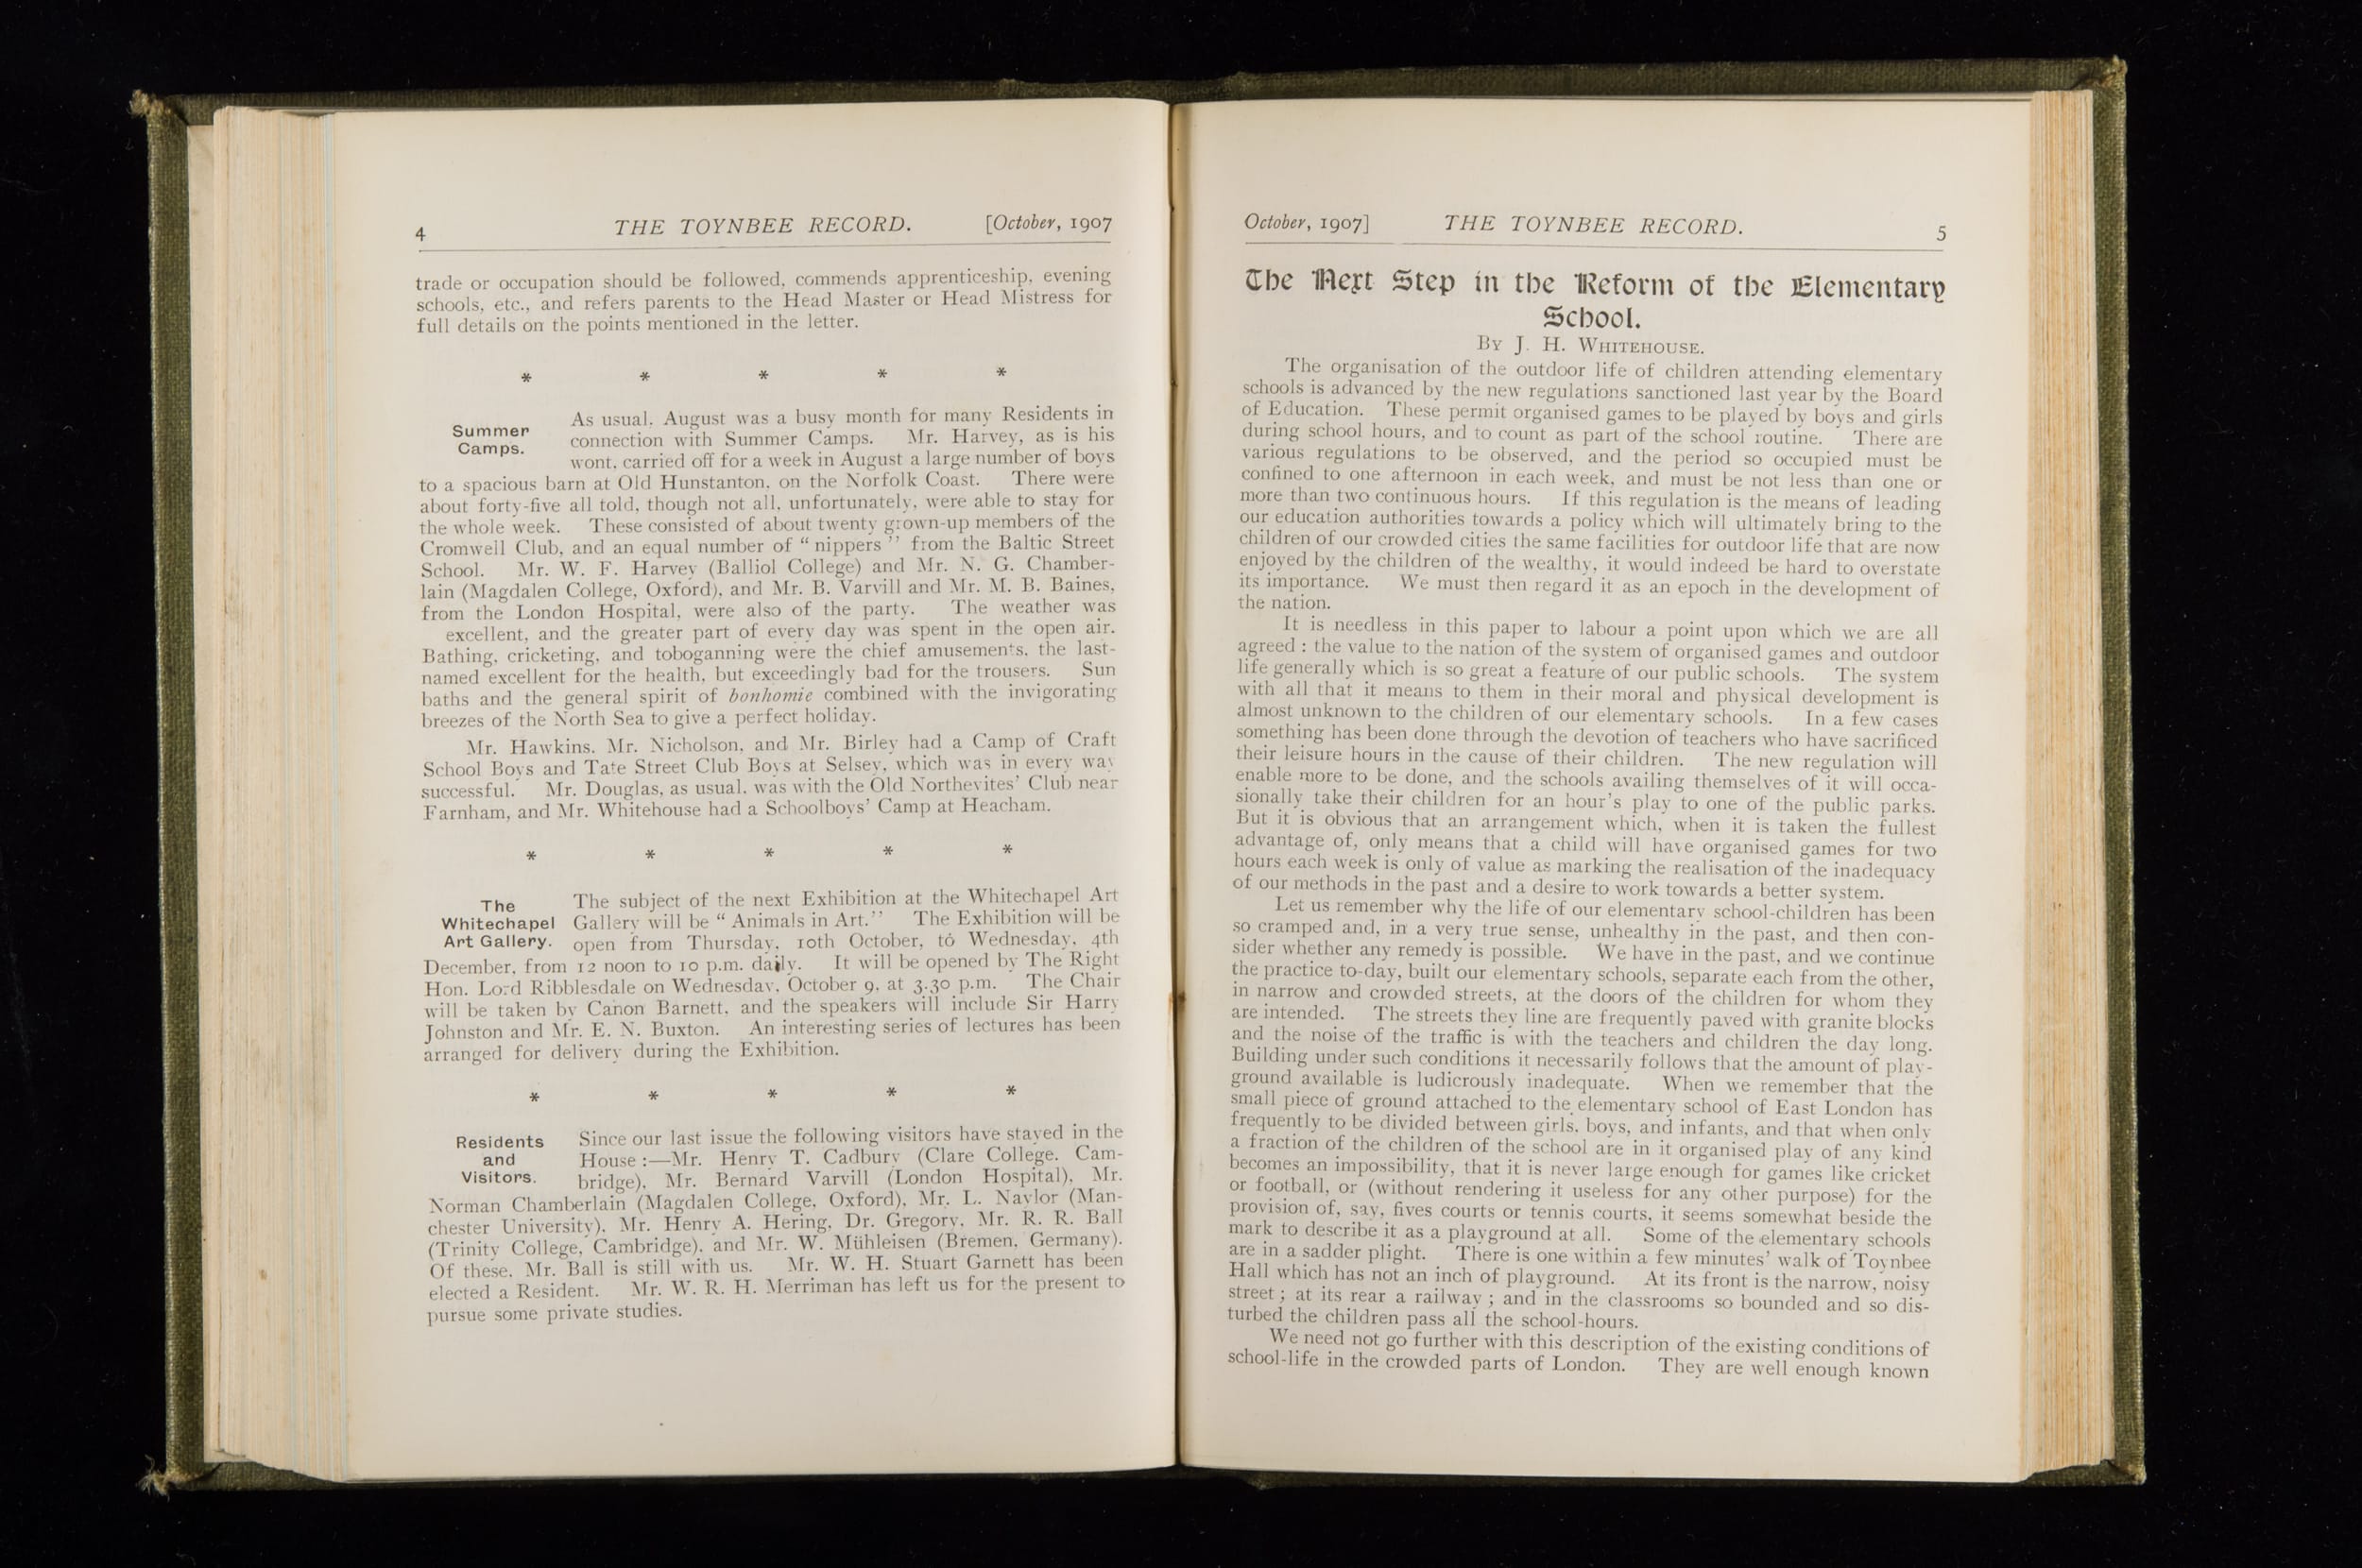 4 THE TOYNBEE RECORD. [October, 1907
trade or occupation should be followed, commends apprenticeship, evening
schools, etc., and refers parents to the Head Master or Head Mistress for
full details on the points mentioned in the letter.
* * * * *
Summer
Camps.
As usual, August was a busy month for many Residents in
connection with Summer Camps. Mr. Harvey, as is his
wont, carried off for a week in August a large number of boys
to a spacious barn at Old Hunstanton, on the Norfolk Coast. There were
about forty-five all told, though not all, unfortunately, were able to stay for
the whole week. These consisted of about twenty grown-up members of the
Cromwell Club, and an equal number of "nippers" from the Baltic Street
School. Mr. W. F. Harvey (Balliol College) and Mr. N. G. Chamber-
lain (Magdalen College, Oxford), and Mr. B. Varvill and Mr. M. B. Baines,
from the London Hospital, were also of the party. The weather was
excellent, and the greater part of every day was spent in the open air.
Bathing, cricketing, and toboganning were the chief amusements, the last-
named excellent for the health, but exceedingly bad for the trousers. Sun
baths and the general spirit of bonhomie combined with the invigorating
breezes of the North Sea to give a perfect holiday.
Mr. Hawkins, Mr. Nicholson, and Mr. Birley had a Camp of Craft
School Boys and Tate Street Club Boys at Selsey, which was in every way
successful. Mr. Douglas, as usual, was with the Old Northeyites' Club near
Farnham, and Mr. Whitehouse had a Schoolboys' Camp at Heacham.
* * * * *
The
Whitechapel
Art Gallery.
The subject of the next Exhibition at the Whitechapel Art
Gallery will be "Animals in Art." The Exhibition will be
open from Thursday, 10th October, to Wednesday, 4th
December, from 12 noon to 10 p.m. daily. It will be opened by The Right
Hon. Lord Ribblesdale on Wednesday, October 9, at 3.30 p.m. The Chair
will be taken by Canon Barnett, and the speakers will include Sir Harry
Johnston and Mr. E. N. Buxton. An interesting series of lectures has been
arranged for delivery during the Exhibition.
* * * * *
Residents
and
Visitors.
Since our last issue the following visitors have stayed in the
House :—Mr. Henry T. Cadbury (Clare College, Cam-
bridge), Mr. Bernard Varvill (London Hospital), Mr.
Norman Chamberlain (Magdalen College, Oxford), Mr. L. Naylor (Man-
chester University), Mr. Henry A. Hering, Dr. Gregory, Mr. R. R. Ball
(Trinity College, Cambridge), and Mr. W. Mühleisen (Bremen, Germany).
Of these, Mr. Ball is still with us. Mr. W. H. Stuart Garnett has been
elected a Resident. Mr. W. R. H. Merriman has left us for the present to
pursue some private studies.
October, 1907] THE TOYNBEE RECORD. 5
The Next Step in the Reform of the Elementary
School.
By J. H. Whitehouse.
The organisation of the outdoor life of children attending elementary
schools is advanced by the new regulations sanctioned last year by the Board
of Education. These permit organised games to be played by boys and girls
during school hours, and to count as part of the school routine. There are
various regulations to be observed, and the period so occupied must be
confined to one afternoon in each week, and must be not less than one or
more than two continuous hours. If this regulation is the means of leading
our education authorities towards a policy which will ultimately bring to the
children of our crowded cities the same facilities for outdoor life that are now
enjoyed by the children of the wealthy, it would indeed be hard to overstate
its importance. We must then regard it as an epoch in the development of
the nation.
It is needless in this paper to labour a point upon which we are all
agreed : the value to the nation of the system of organised games and outdoor
life generally which is so great a feature of our public schools. The system
with all that it means to them in their moral and physical development is
almost unknown to the children of our elementary schools. In a few cases
something has been done through the devotion of teachers who have sacrificed
their leisure hours in the cause of their children. The new regulation will
enable more to be done, and the schools availing themselves of it will occa-
sionally take their children for an hour's play to one of the public parks.
But it is obvious that an arrangement which, when it is taken the fullest
advantage of, only means that a child will have organised games for two
hours each week is only of value as marking the realisation of the inadequacy
of our methods in the past and a desire to work towards a better system.
Let us remember why the life of our elementary school-children has been
so cramped and, in a very true sense, unhealthy in the past, and then con-
sider whether any remedy is possible. We have in the past, and we continue
the practice to-day, built our elementary schools, separate each from the other,
in narrow and crowded streets, at the doors of the children for whom they
are intended. The streets they line are frequently paved with granite blocks
and the noise of the traffic is with the teachers and children the day long.
Building under such conditions it necessarily follows that the amount of play-
ground available is ludicrously inadequate. When we remember that the
small piece of ground attached to the elementary school of East London has
frequently to be divided between girls, boys, and infants, and that when only
a fraction of the children of the school are in it organised play of any kind
becomes an impossibility, that it is never large enough for games like cricket
or football, or (without rendering it useless for any other purpose) for the
provision of, say, fives courts or tennis courts, it seems somewhat beside the
mark to describe it as a playground at all. Some of the elementary schools
are in a sadder plight. There is one within a few minutes' walk of Toynbee
Hall which has not an inch of playground. At its front is the narrow, noisy
street ; at its rear a railway ; and in the classrooms so bounded and so dis-
turbed the children pass all the school-hours.
We need not go further with this description of the existing conditions of
school-life in the crowded parts of London. They are well enough known